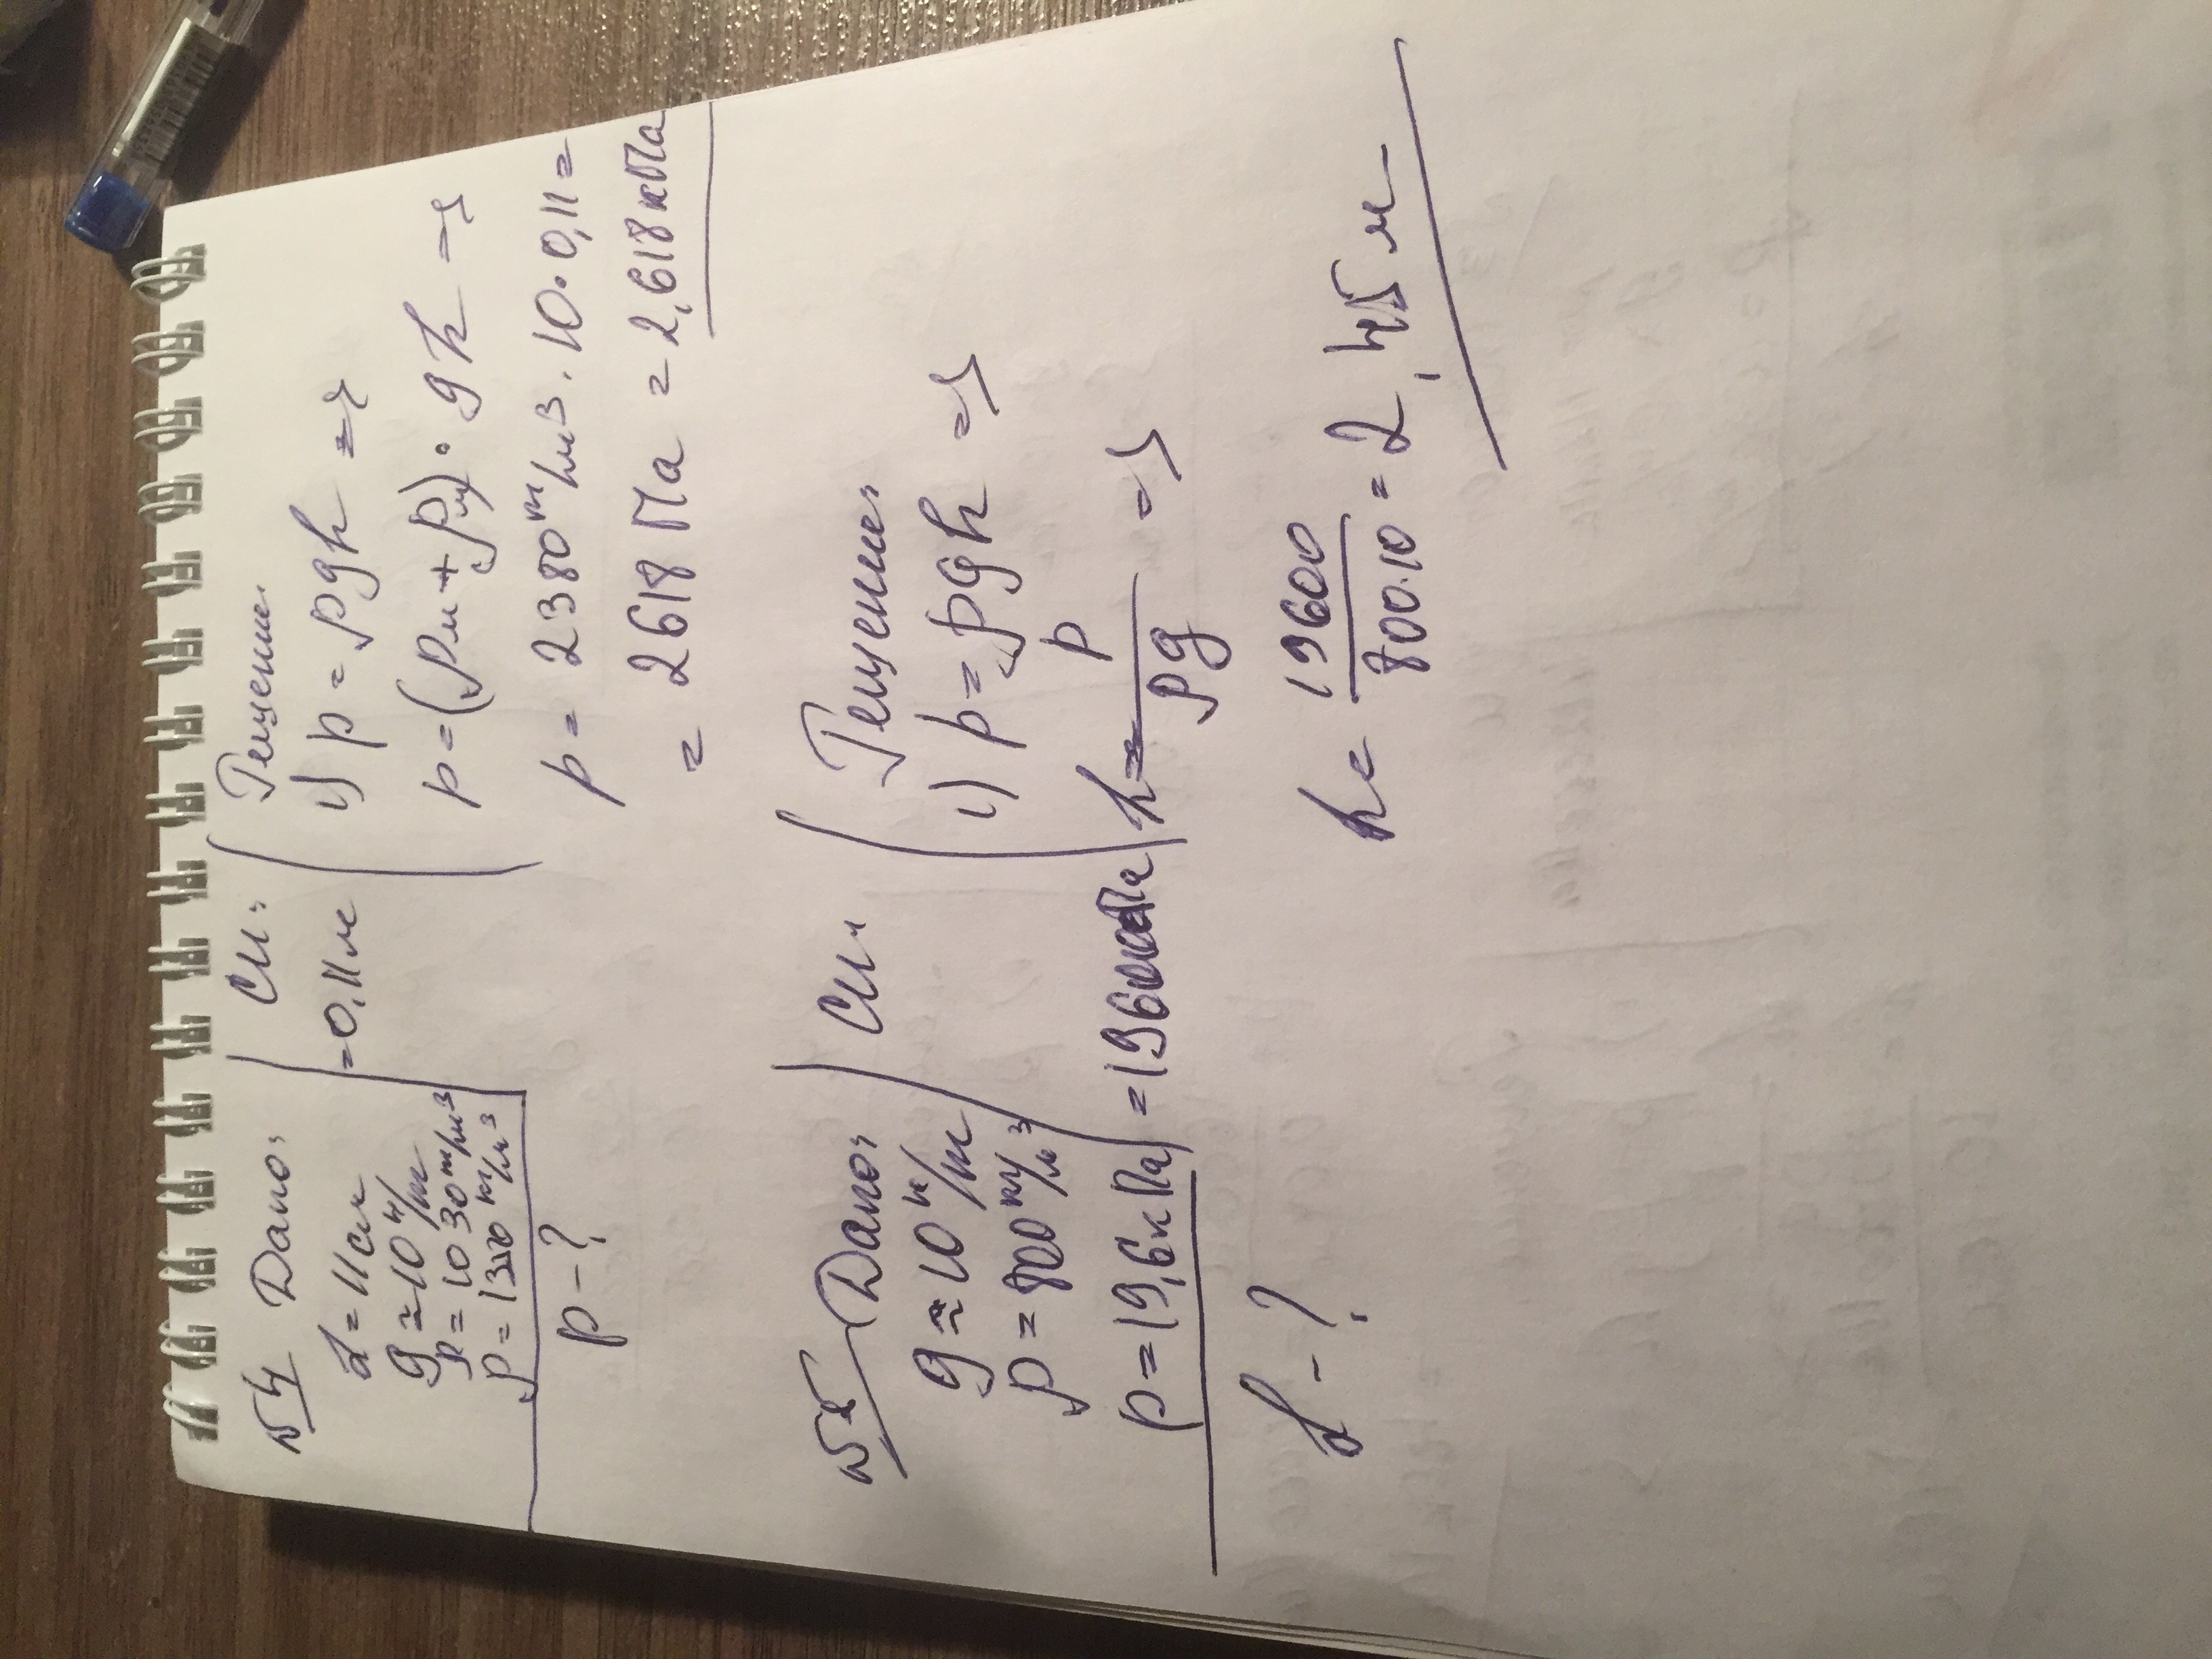 №4 Дано:
d = 11см
g ≈ 10 н/кг
ρ = 1030 кг/м³
ρ = 1350 кг/м³
p - ?
СИ:
= 0,11м
Решение:
1) p = ρgh =>
p = (ρм + ρм) · gh =>
p = 2380 кг/м³ · 10 · 0,11 =
= 2618 Па = 2,618 кПа
№5 Дано:
g ≈ 10 н/кг
ρ = 800 кг/м³
p = 19,6 кПа
d - ?
СИ:
= 19600Па
Решение:
1) p = ρgh =>
h = p/ρg =>
h = 19600/800·10 = 2,45 м